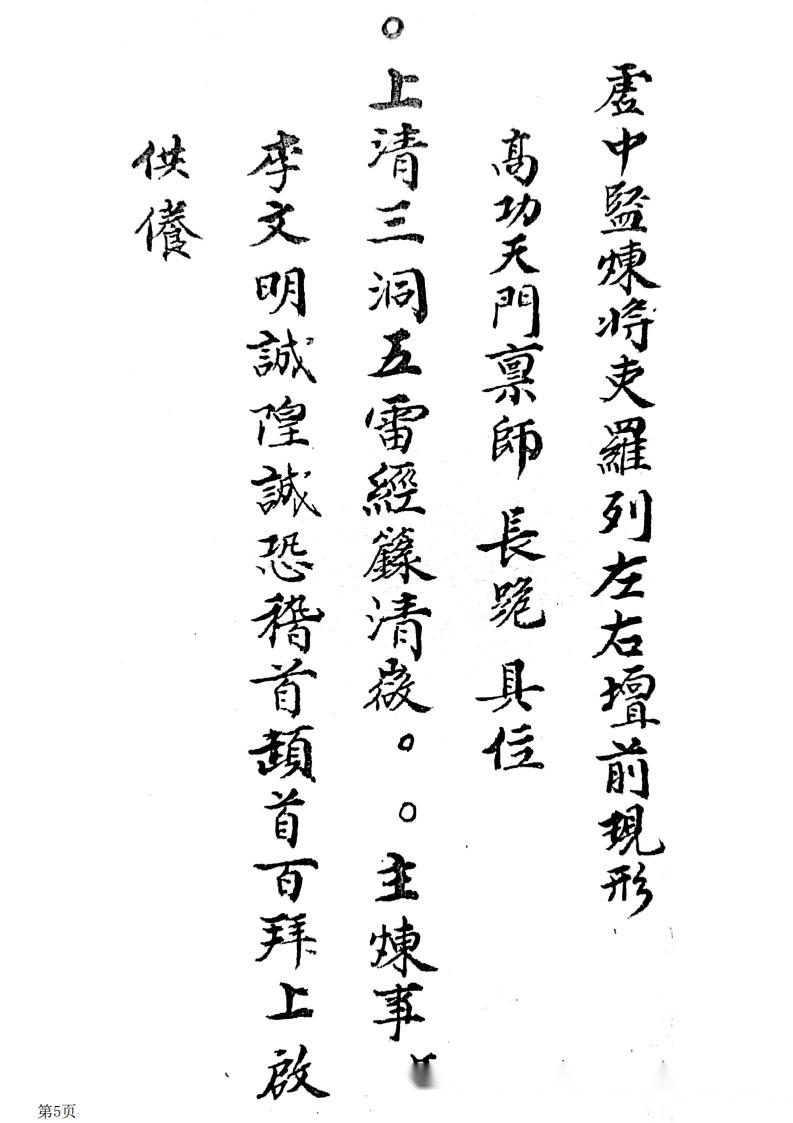 虛中監煉將吏羅列左右壇前現形
高功天門稟師 長跪 具位
○上清三洞五雷經籙清微○○主煉事
李文明誠隍誠恐稽首頓首百拜上啟
供養
第5页